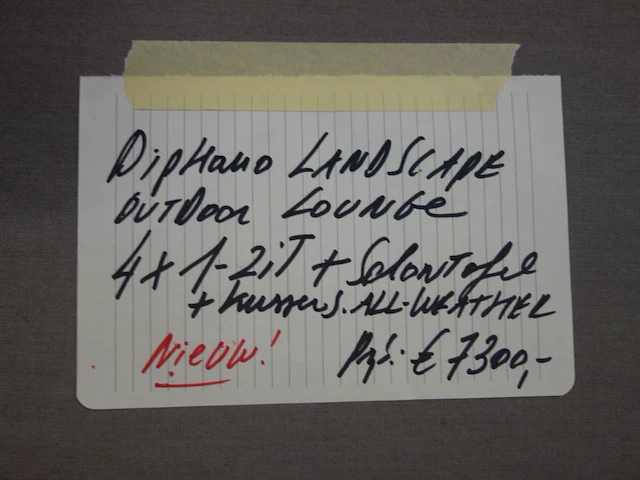 DipHano LANDSCAPE
OUTDoor LOUNGe
4 x 1-ZiT + SalonTafel
+ kussens. ALL-WEATHER
Nieuw! Prijs: € 7300,-